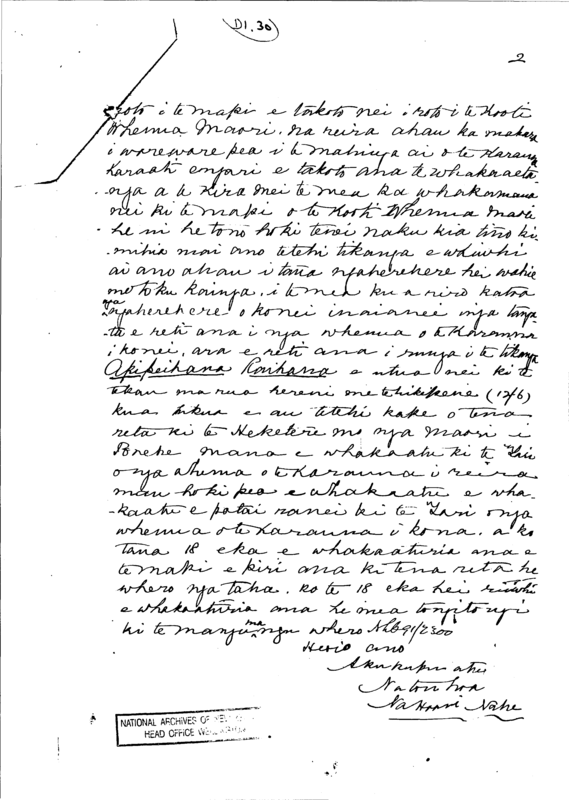 D1.30
2
roto i te mapi e takoto nei i roto i te Kooti
Whenua Maori. na reira ahau ka mahara
i wareware pea i te mahinga ai o te Karauna
Karaati engari e takoto ana te whakaaeta-
nga a te Kira mei te mea ka whakamaua
nei ki te mapi o te Kooti Whenua Maori
he ni he tono hoki tenei naku kia tino ki-
mihia mai ano tetehi tikanga e whiwhi
ai ano ahau i taua ngaherehere hei wahie
mo toku kainga. i te mea kua riro katoa
nga ngaherehere o konei inaianei nga tanga-
ta e reti ana i nga whenua o te Karauna
i konei, ara e reti ana i runga i te tikanga
Akipeihana Raihana e utua nei ki te
tekau ma rua hereni me te hikipene (12/6)
kua tukua e au tetehi kape o tena
reta ki te Heketere mo nga Maori i
Poneke mana e whakaatu ki te Tari
o nga whenua o te Karauna i reira
mau hoki pea e whakaatu e wha-
kaatu e patai ranei ki te Tari o nga
whenua o te Karauna i kona. a ko
taua 18 eka e whakaaturia ana e
te mapi e piri ana ki tena reta he
whero nga taha. ko te 18 eka hei riiwhi
e whakaaturia ana he mea tongitongi
ki te mangumangu whero NLB 91/2300
Heoi ano
Aku kupu atu
Na tou hoa
Na Hoani Nahe
NATIONAL ARCHIVES OF NEW
HEAD OFFICE